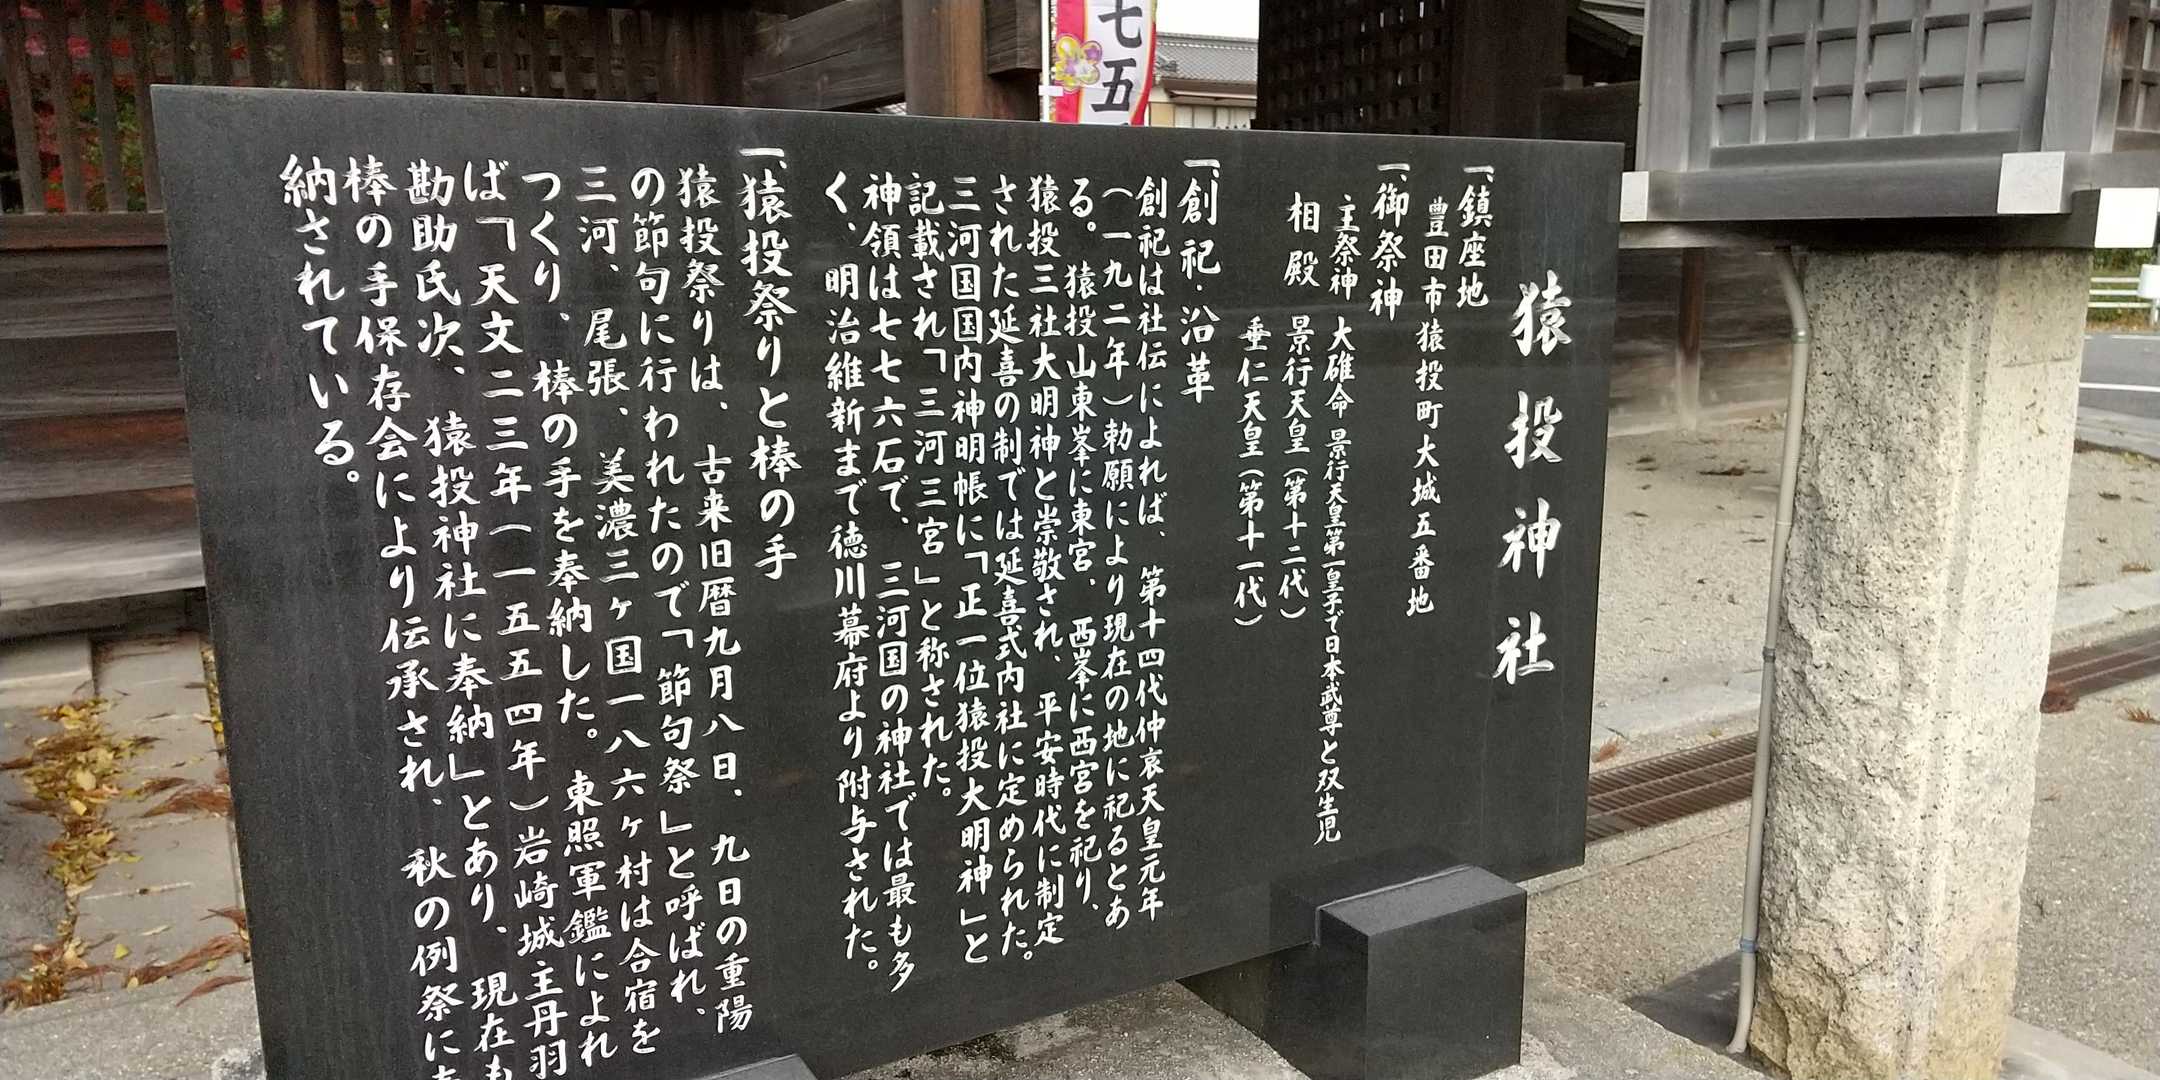 七五
猿投神社
一、鎮座地
豊田市猿投町大城五番地
一、御祭神
主祭神 大碓命 景行天皇第一皇子で日本武尊と双生児
相殿 景行天皇(第十二代)
垂仁天皇(第十一代)
一、創祀・沿革
創祀は社伝によれば、第十四代仲哀天皇元年
(一九二年)勅願により現在の地に祀るとあ
る。猿投山東峯に東宮、西峯に西宮を祀り、
猿投三社大明神と崇敬され、平安時代に制定
された延喜の制では延喜式内社に定められた。
三河国国内神明帳に「正一位猿投大明神」と
記載され「三河三宮」と称された。
神領は七七六石で、三河国の神社では最も多
く、明治維新まで徳川幕府より附与された。
一、猿投祭りと棒の手
猿投祭りは、古来旧暦九月八日、九日の重陽
の節句に行われたので「節句祭」と呼ばれ、
三河、尾張、美濃三ヶ国一八六ヶ村は合宿を
つくり、棒の手を奉納した。東照軍鑑によれ
ば「天文二三年(一五五四年)岩崎城主丹羽
勘助氏次、猿投神社に奉納」とあり、現在も
棒の手保存会により伝承され、秋の例祭に
納されている。